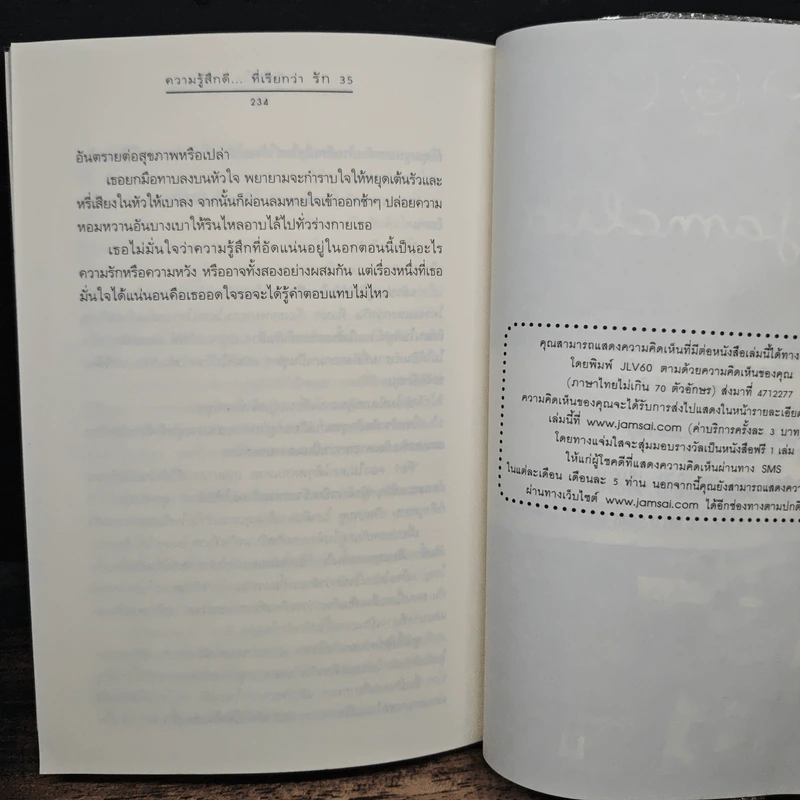 ความรู้สึกดี... ที่เรียกว่า รัก 35
234
อันตรายต่อสุขภาพหรือเปล่า
เธอยกมือทาบลงบนหัวใจ พยายามจะกำราบใจให้หยุดเต้นรัวและ
หรี่เสียงในหัวให้เบาลง จากนั้นก็ผ่อนลมหายใจเข้าออกช้าๆ ปล่อยความ
หอมหวานอันบางเบาให้รินไหลอาบไล้ไปทั่วร่างกายเธอ
เธอไม่มั่นใจว่าความรู้สึกที่อัดแน่นอยู่ในอกตอนนี้เป็นอะไร
ความรักหรือความหวัง หรืออาจทั้งสองอย่างผสมกัน แต่เรื่องหนึ่งที่เธอ
มั่นใจได้แน่นอนคือเธออดใจรอจะได้รู้คำตอบแทบไม่ไหว
คุณสามารถแสดงความคิดเห็นที่มีต่อหนังสือเล่มนี้ได้ทาง
โดยพิมพ์ JLV60 ตามด้วยความคิดเห็นของคุณ
(ภาษาไทยไม่เกิน 70 ตัวอักษร) ส่งมาที่ 4712277
ความคิดเห็นของคุณจะได้รับการส่งไปแสดงในหน้ารายละเอียด
เล่มนี้ที่ www.jamsai.com (ค่าบริการครั้งละ 3 บาท
โดยทางแจ่มใสจะสุ่มมอบรางวัลเป็นหนังสือฟรี 1 เล่ม
ให้แก่ผู้โชคดีที่แสดงความคิดเห็นผ่านทาง SMS
ในแต่ละเดือน เดือนละ 5 ท่าน นอกจากนี้คุณยังสามารถแสดงคว
ผ่านทางเว็บไซต์ www.jamsai.com ได้อีกช่องทางตามปกติ